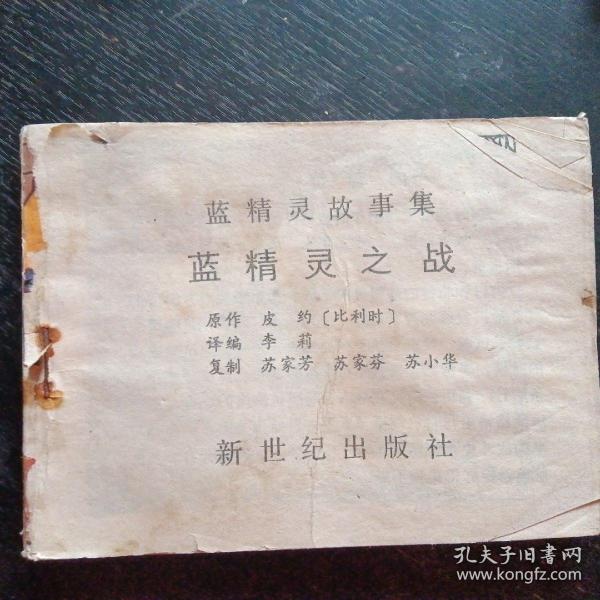 蓝精灵故事集
蓝精灵之战
原作 皮 约〔比利时〕
译编 李 莉
复制 苏家芳 苏家芬 苏小华
新世纪出版社
孔夫子旧书网
www.kongfz.com